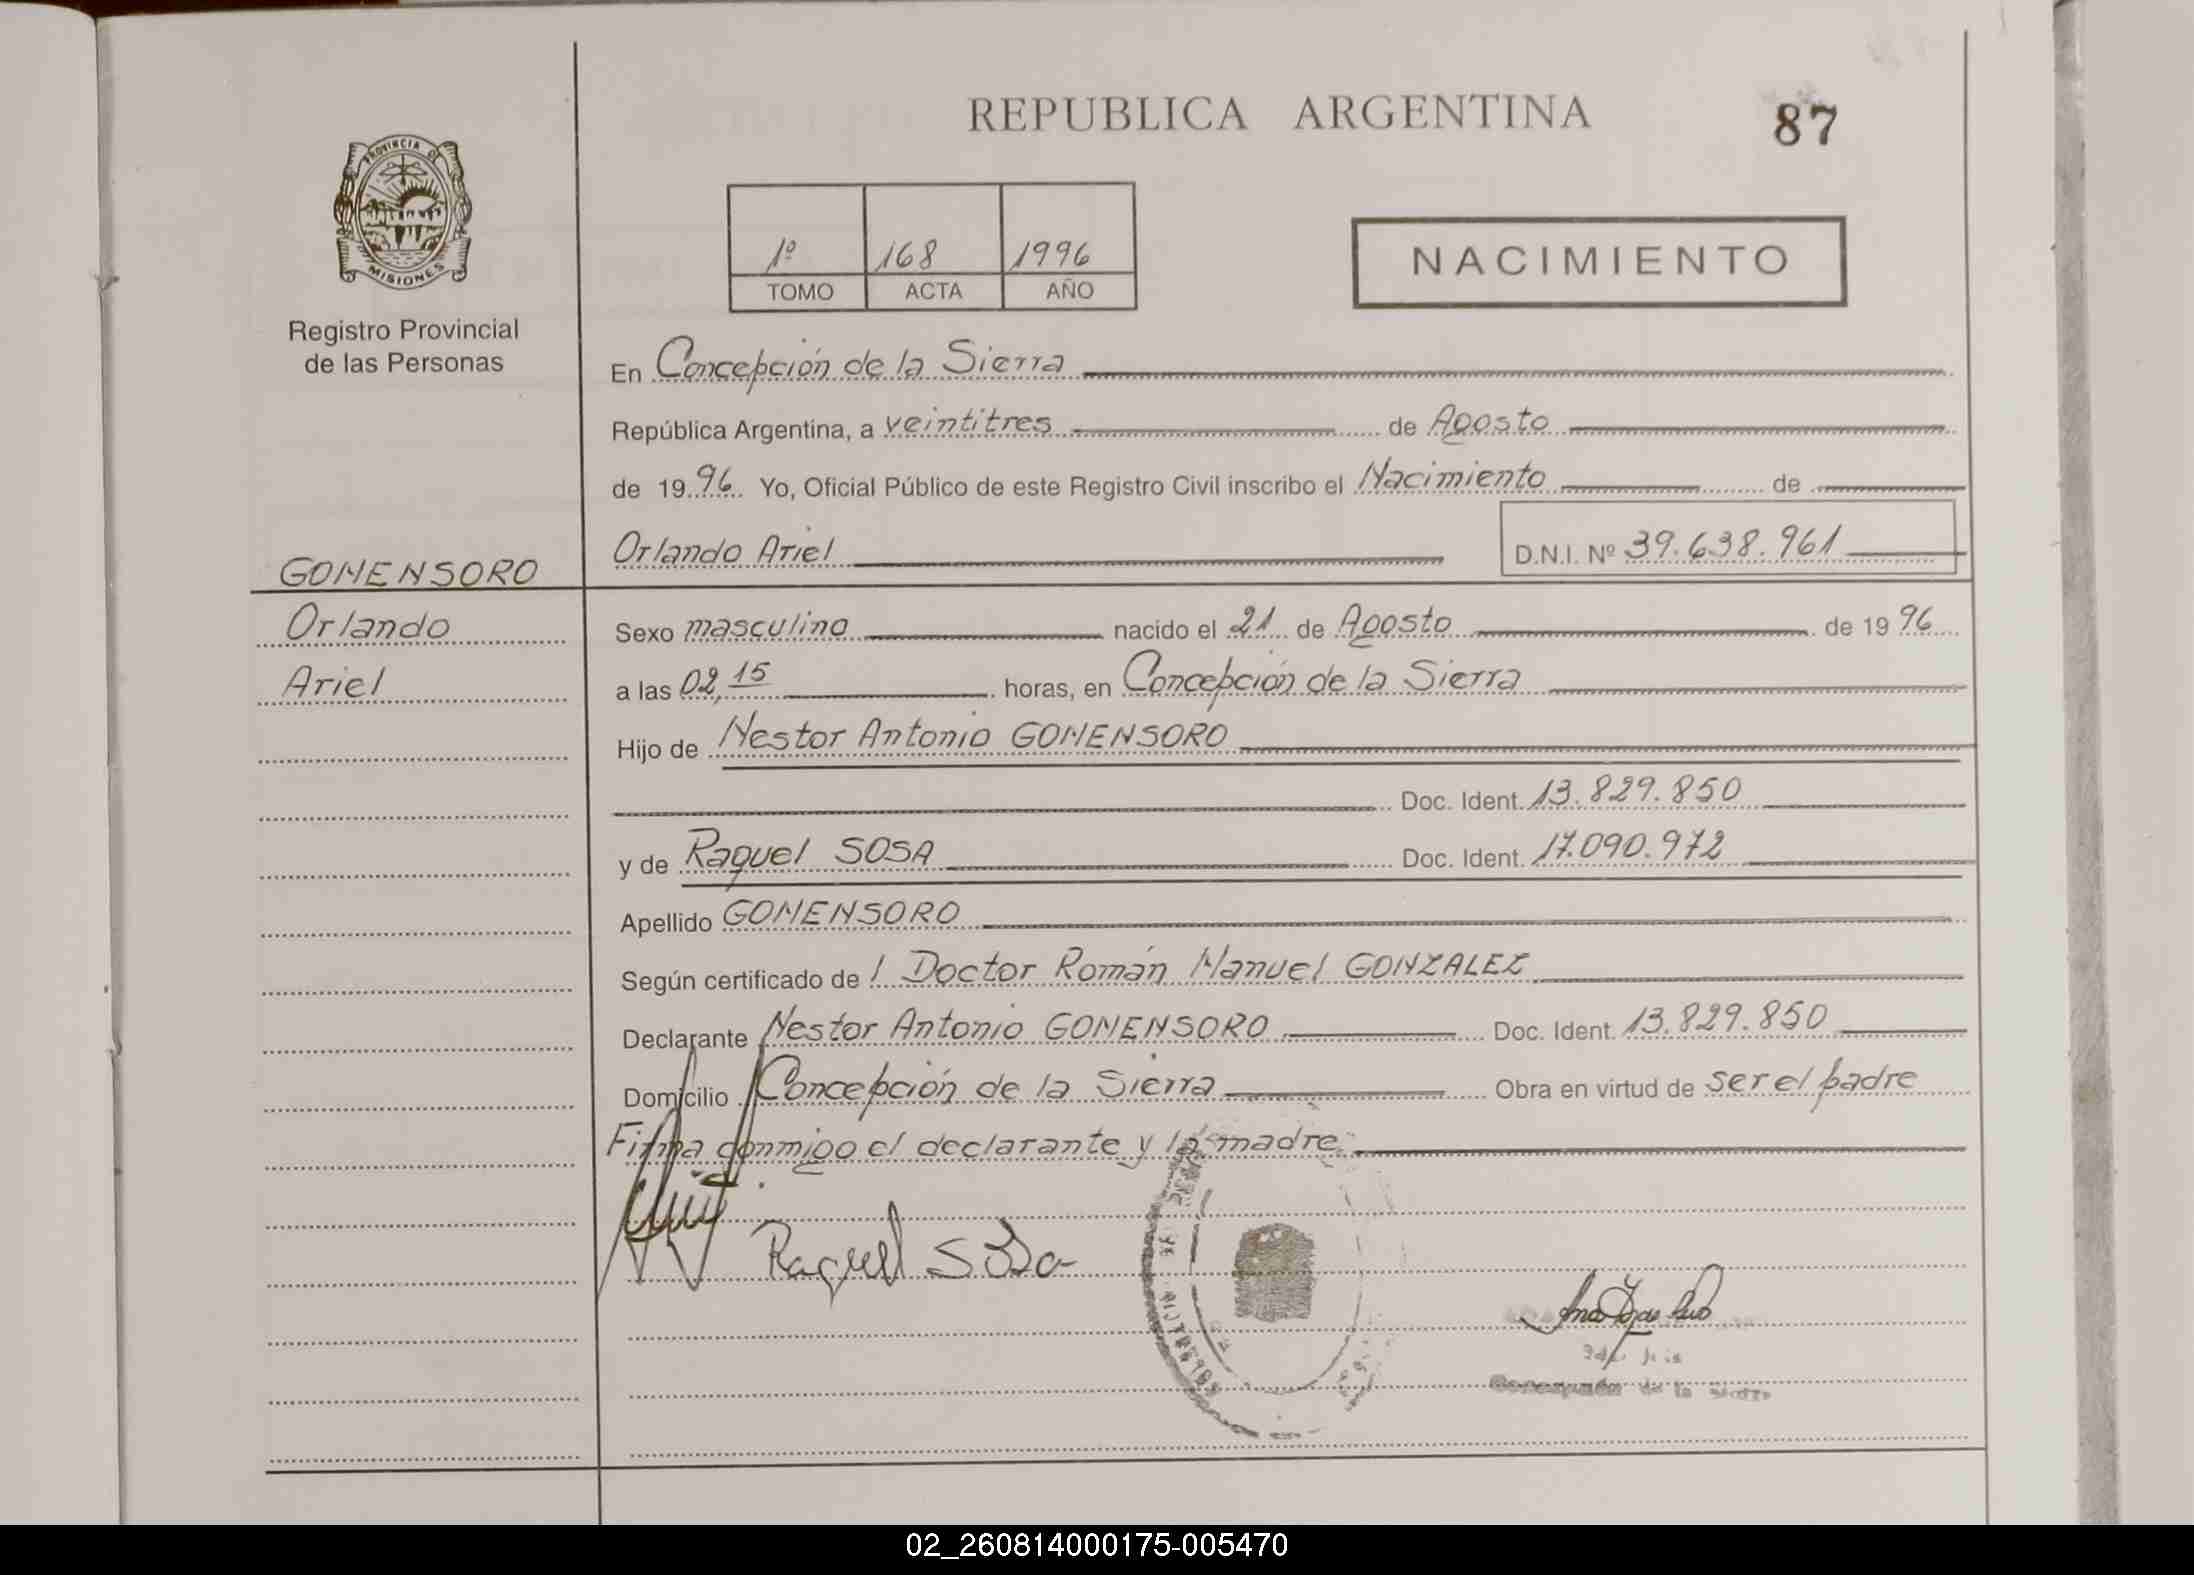 REPUBLICA ARGENTINA
87
PROVINCIA DE
MISIONES
Registro Provincial
de las Personas
1º 168 1996
TOMO ACTA AÑO
NACIMIENTO
En Concepción de la Sierra
República Argentina, a veintitres de Agosto
de 19 96 Yo, Oficial Público de este Registro Civil inscribo el Nacimiento de
Orlando Ariel D.N.I. Nº 39.638.961
GOMENSORO
Orlando
Ariel
Sexo masculino nacido el 21 de Agosto de 19 96
a las 02,15 horas, en Concepción de la Sierra
Hijo de Nestor Antonio GOMENSORO
Doc. Ident. 13.829.850
y de Raquel SOSA Doc. Ident. 17.090.972
Apellido GOMENSORO
Según certificado de l Doctor Román Manuel GONZALEZ
Declarante Nestor Antonio GOMENSORO Doc. Ident. 13.829.850
Domicilio Concepción de la Sierra Obra en virtud de ser el padre
Firma conmigo el declarante y la madre.
Raquel Sosa
Concepción de la Sierra
02_260814000175-005470